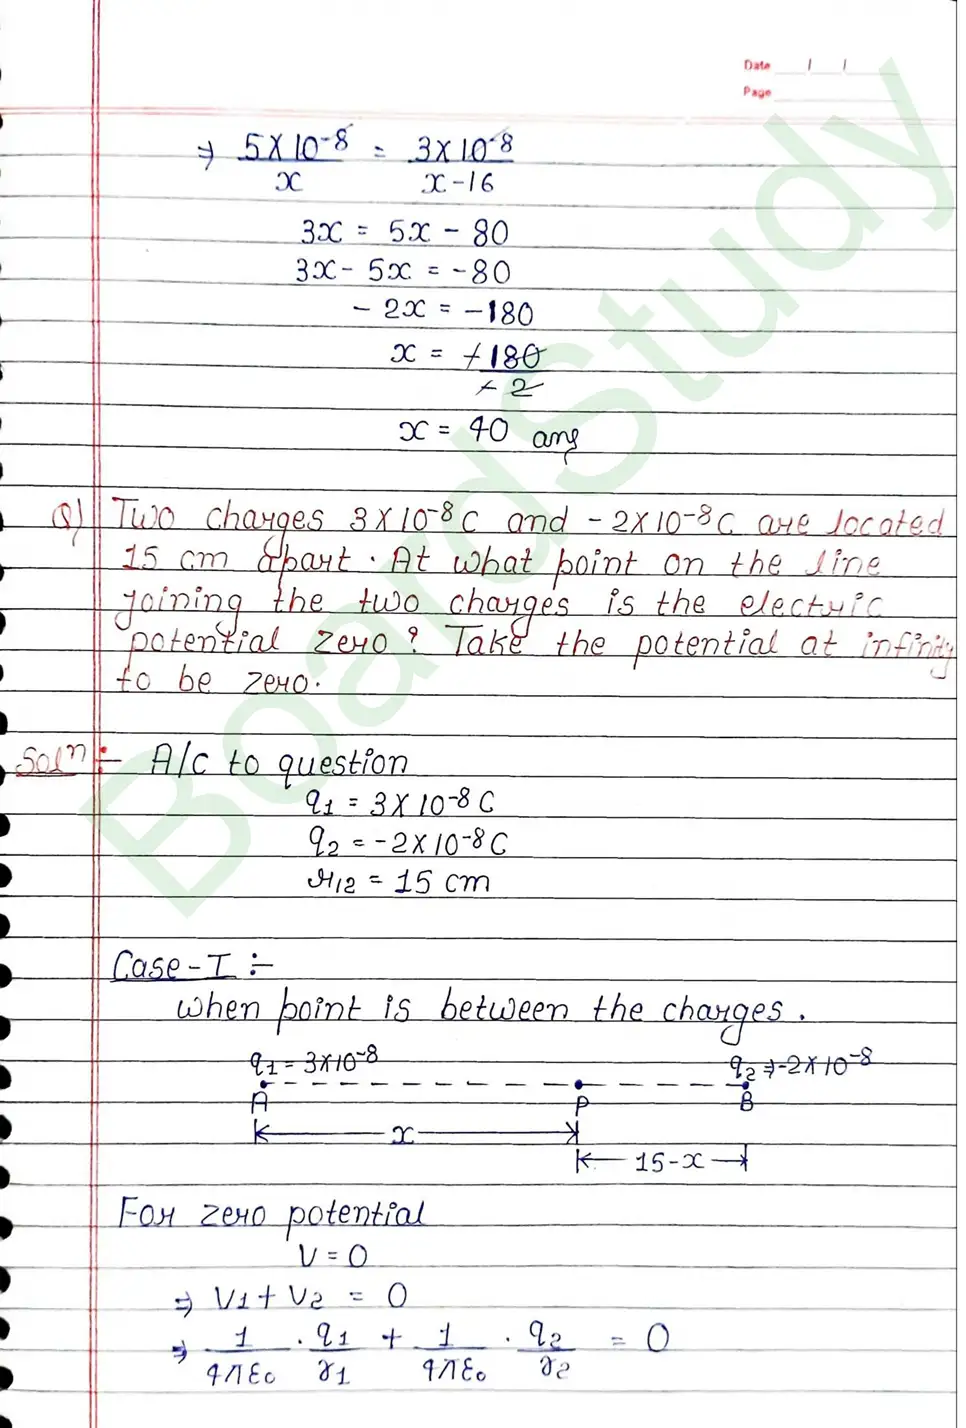 Date / /
Page
⇒ 5×10⁻⁸/x = 3×10⁻⁸/x-16
3x = 5x - 80
3x - 5x = -80
- 2x = -180
x = -180/-2
x = 40 ans
Q) Two charges 3×10⁻⁸C and -2×10⁻⁸C are located
15 cm apart. At what point on the line
joining the two charges is the electric
potential zero? Take the potential at infinity
to be zero.
Solⁿ :- A/c to question
q₁ = 3×10⁻⁸C
q₂ = -2×10⁻⁸C
r₁₂ = 15 cm
Case-I :-
when point is between the charges.
q₁ = 3×10⁻⁸ q₂ ⇒ -2×10⁻⁸
A P B
x
15-x
For zero potential
V = 0
⇒ V₁ + V₂ = 0
⇒ 1/4πε₀ . q₁/r₁ + 1/4πε₀ . q₂/r₂ = 0
BoardStudy